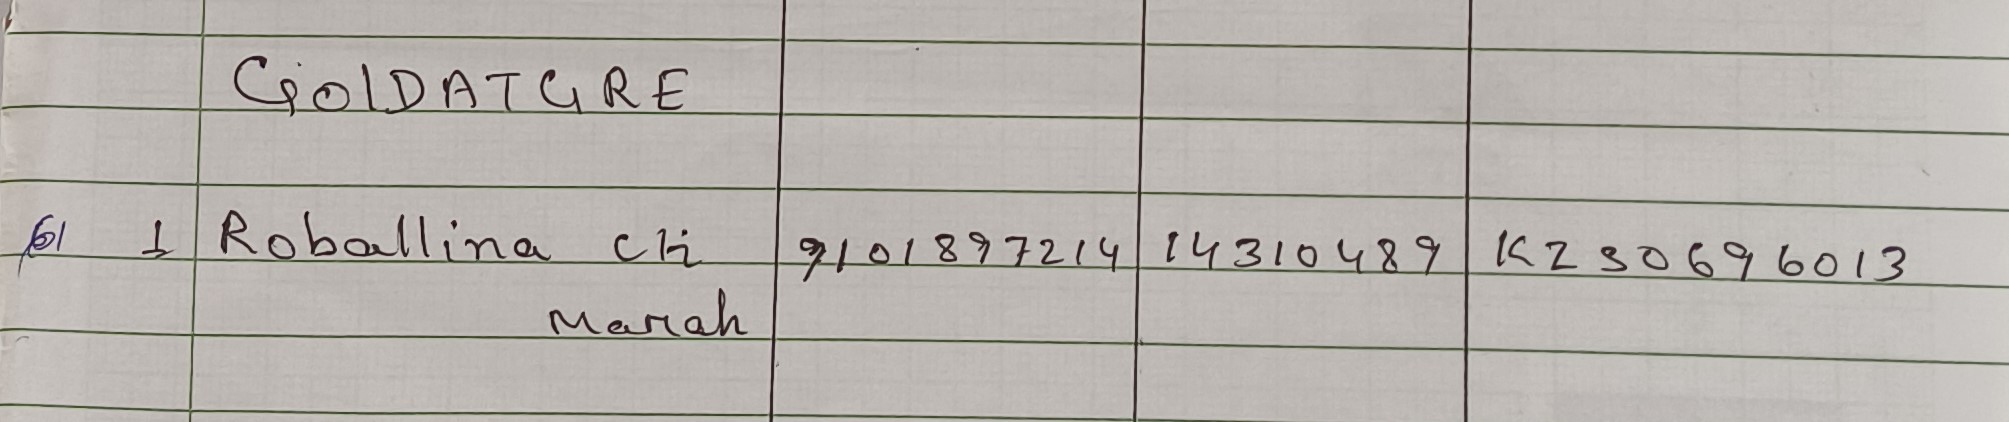 GOlDATGRE
61 1 Roballina Ch 9101897214 14310489 KZ30696013
Marah